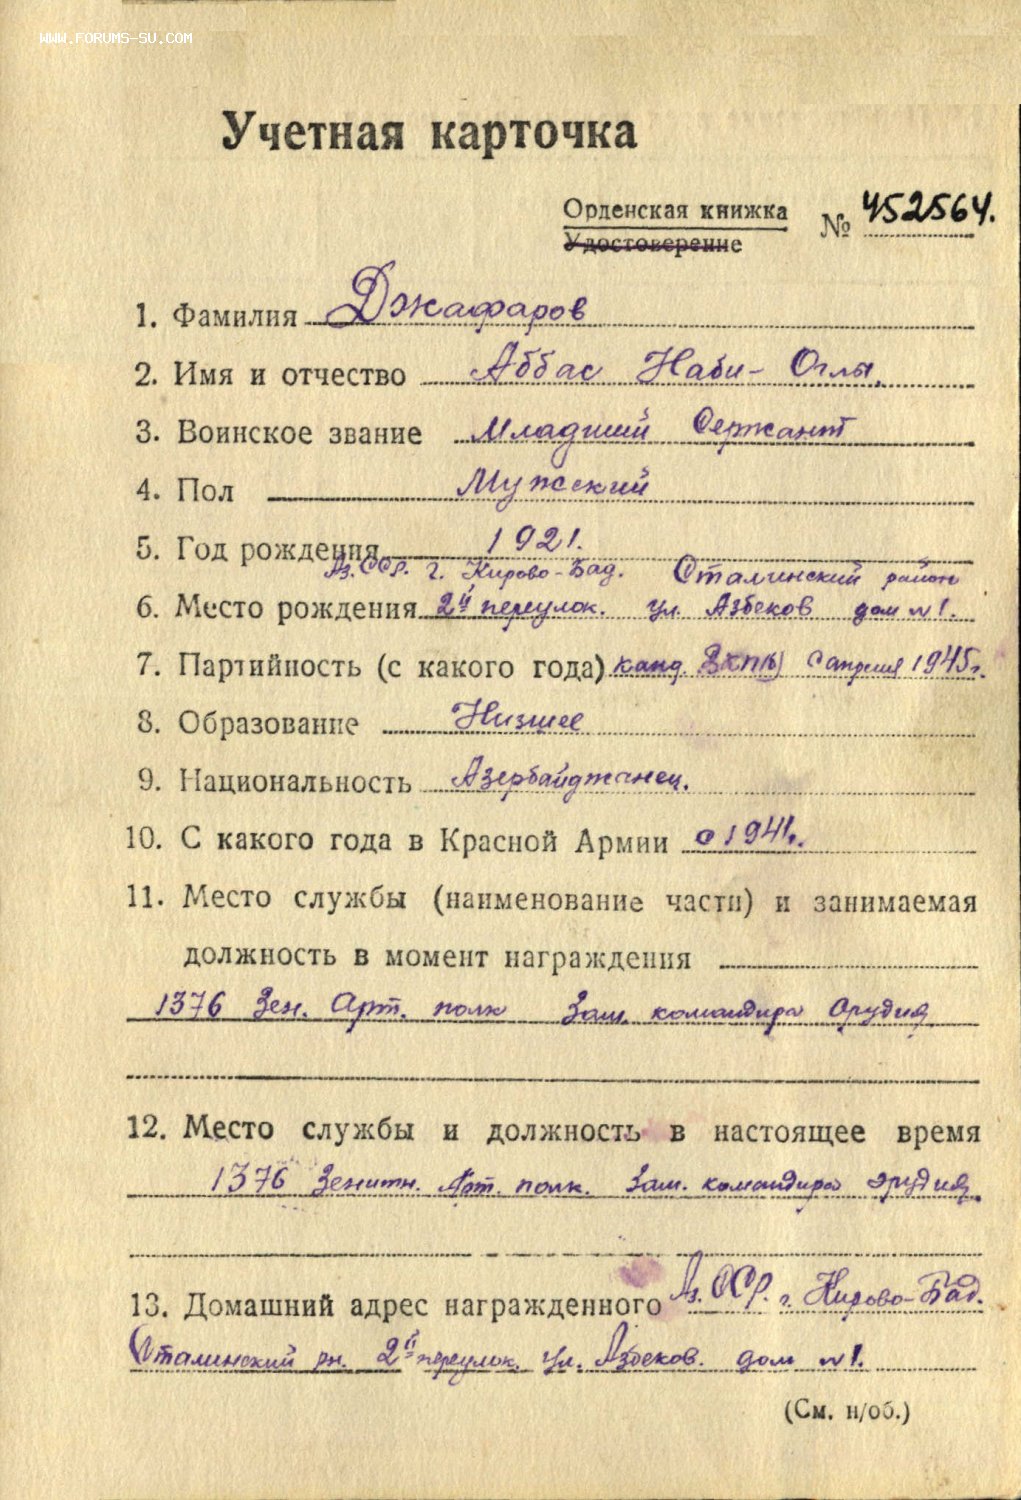 WWW.FORUMS-SU.COM
Учетная карточка
Орденская книжка № 452564.
Удостоверение
1. Фамилия Джафаров
2. Имя и отчество Аббас Наби-Оглы.
3. Воинское звание Младший Сержант
4. Пол Мужской
5. Год рождения 1921.
Аз.ССР. г. Кирово-Бад. Сталинский район
6. Место рождения 2й переулок. ул. Азбеков дом №1.
7. Партийность (с какого года) канд. ВКП(б) с апреля 1945г.
8. Образование Низшее
9. Национальность Азербайджанец.
10. С какого года в Красной Армии с 1941г.
11. Место службы (наименование части) и занимаемая
должность в момент награждения
1376 Зен. Арт. полк Зам. командира Орудия
12. Место службы и должность в настоящее время
1376 Зенитн. Арт. полк. Зам. командира орудия.
13. Домашний адрес награжденного Аз.ССР. г. Кирово-Бад.
Сталинский рн. 2й переулок. ул. Азбеков. дом №1.
(См. н/об.)